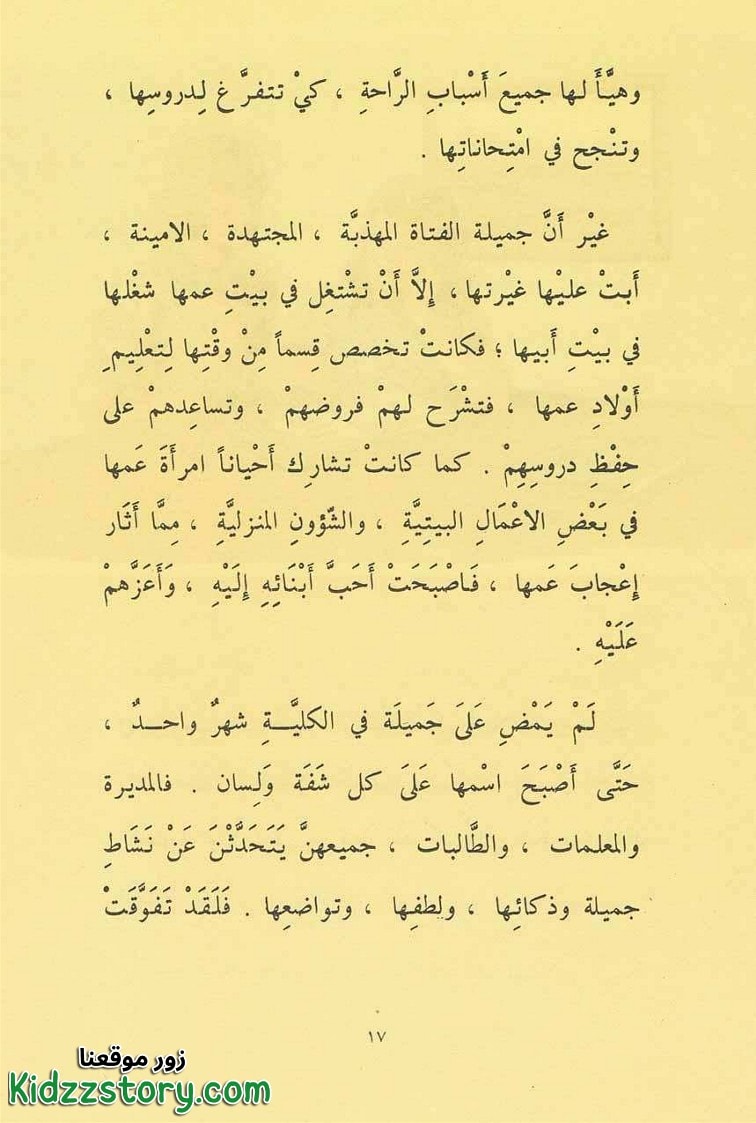 وهيَّأَ لها جميعَ أَسْبابِ الرَّاحةِ ، كيْ تتفرَّغ لِدروسِها ،
وتنْجح في امْتِحاناتِها .
غيْر أَنَّ جميلة الفتاة المهذبَّة ، المجتهدة ، الامينة ،
أَبتْ عليْها غيْرتها ، إِلاَّ أَنْ تشْتغِل في بيْتِ عمها شغْلها
في بيْتِ أَبيها ؛ فكانتْ تخصص قِسماً مِنْ وقْتِها لِتعْلِيمِ
أَوْلادِ عمها ، فتشْرَح لهمْ فروضهمْ ، وتساعِدهمْ على
حِفْظِ دروسِهِمْ . كما كانتْ تشارِك أَحْياناً امرأَةَ عَمها
في بَعْضِ الاعْمَالِ البيتِيَّةِ ، والشّؤونِ المنزليَّةِ ، مِمَّا أَثَار
إِعْجابَ عَمها ، فَاصْبَحَتْ أَحَبَّ أَبْنَائِهِ إِلَيْهِ ، وَأَعَزَّهمْ
عَلَيْهِ .
لَمْ يَمْضِ عَلَى جَميلَة في الكليَّةِ شهرٌ واحدٌ ،
حَتَّى أَصْبَحَ اسْمها عَلَى كل شَفَة وَلِسان . فالمديرة
والمعلمات ، والطَّالبات ، جميعهنَّ يَتَحَدَّثْنَ عَنْ نَشَاطِ
جميلة وذكائِها ، ولطفِها ، وتواضعِها . فَلَقَدْ تَفَوَّقَتْ
١٧
زور موقعنا
Kidzzstory.com